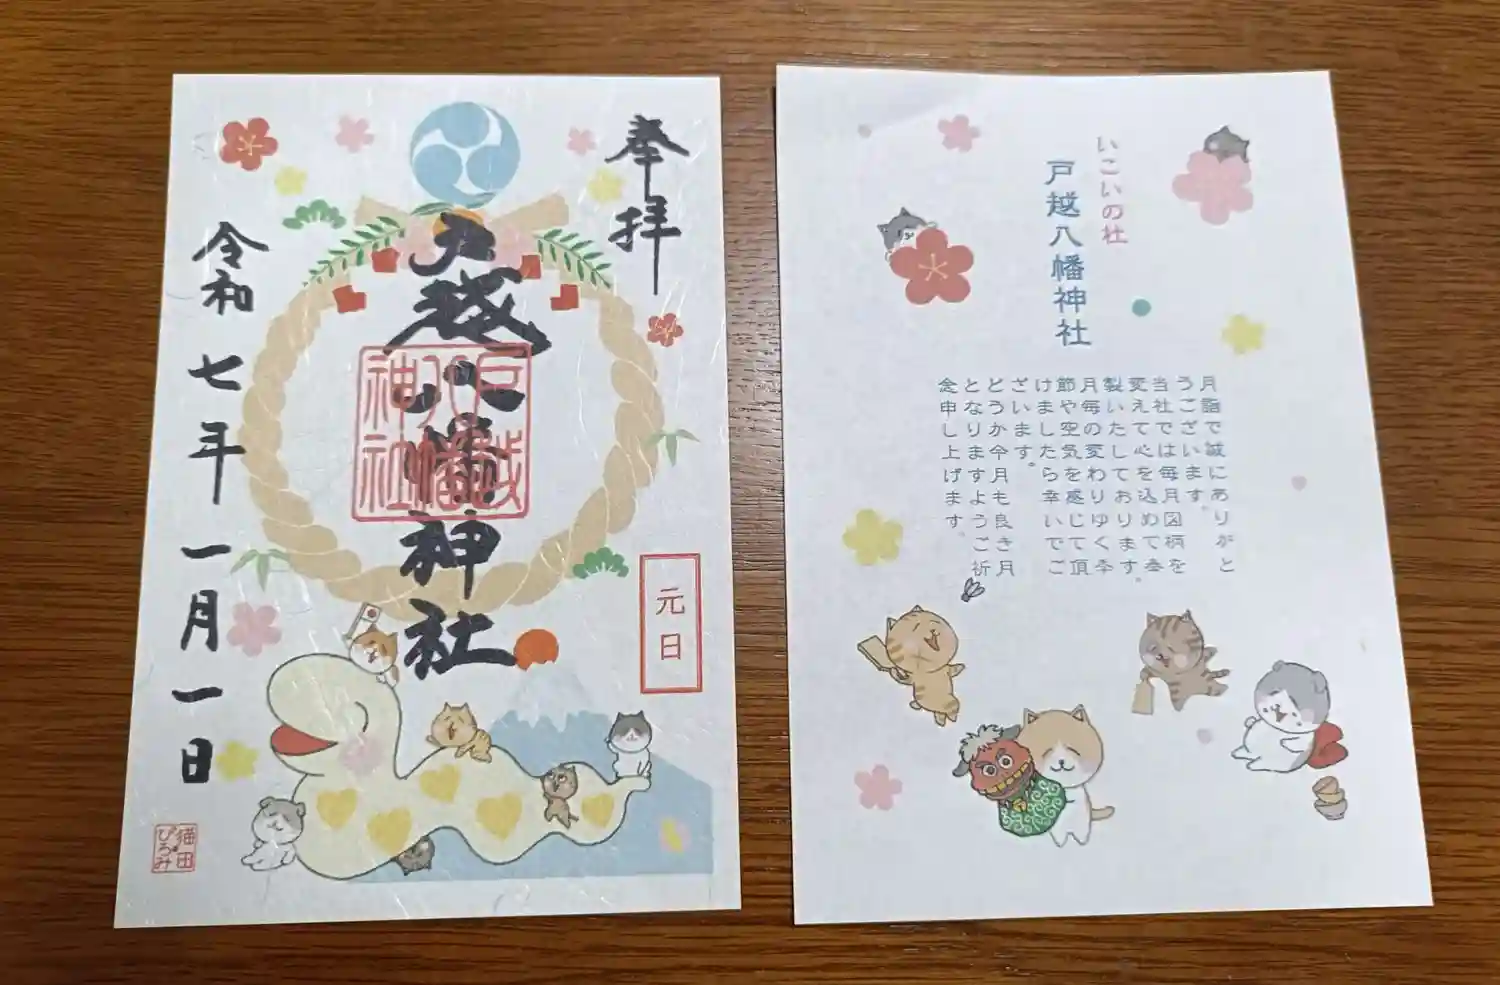 奉拝
戸越八幡神社
戸越
八幡
神社
令和七年一月一日
元日
猫田
ぴろみ
いこいの社
戸越八幡神社
月詣で誠にありがと
うございます。
当社では毎月図柄を
変えて心を込めて奉
製いたしております。
月毎の変わりゆく季
節や空気を感じて頂
けましたら幸いでご
ざいます。
どうか今月も良き月
となりますようご祈
念申し上げます。